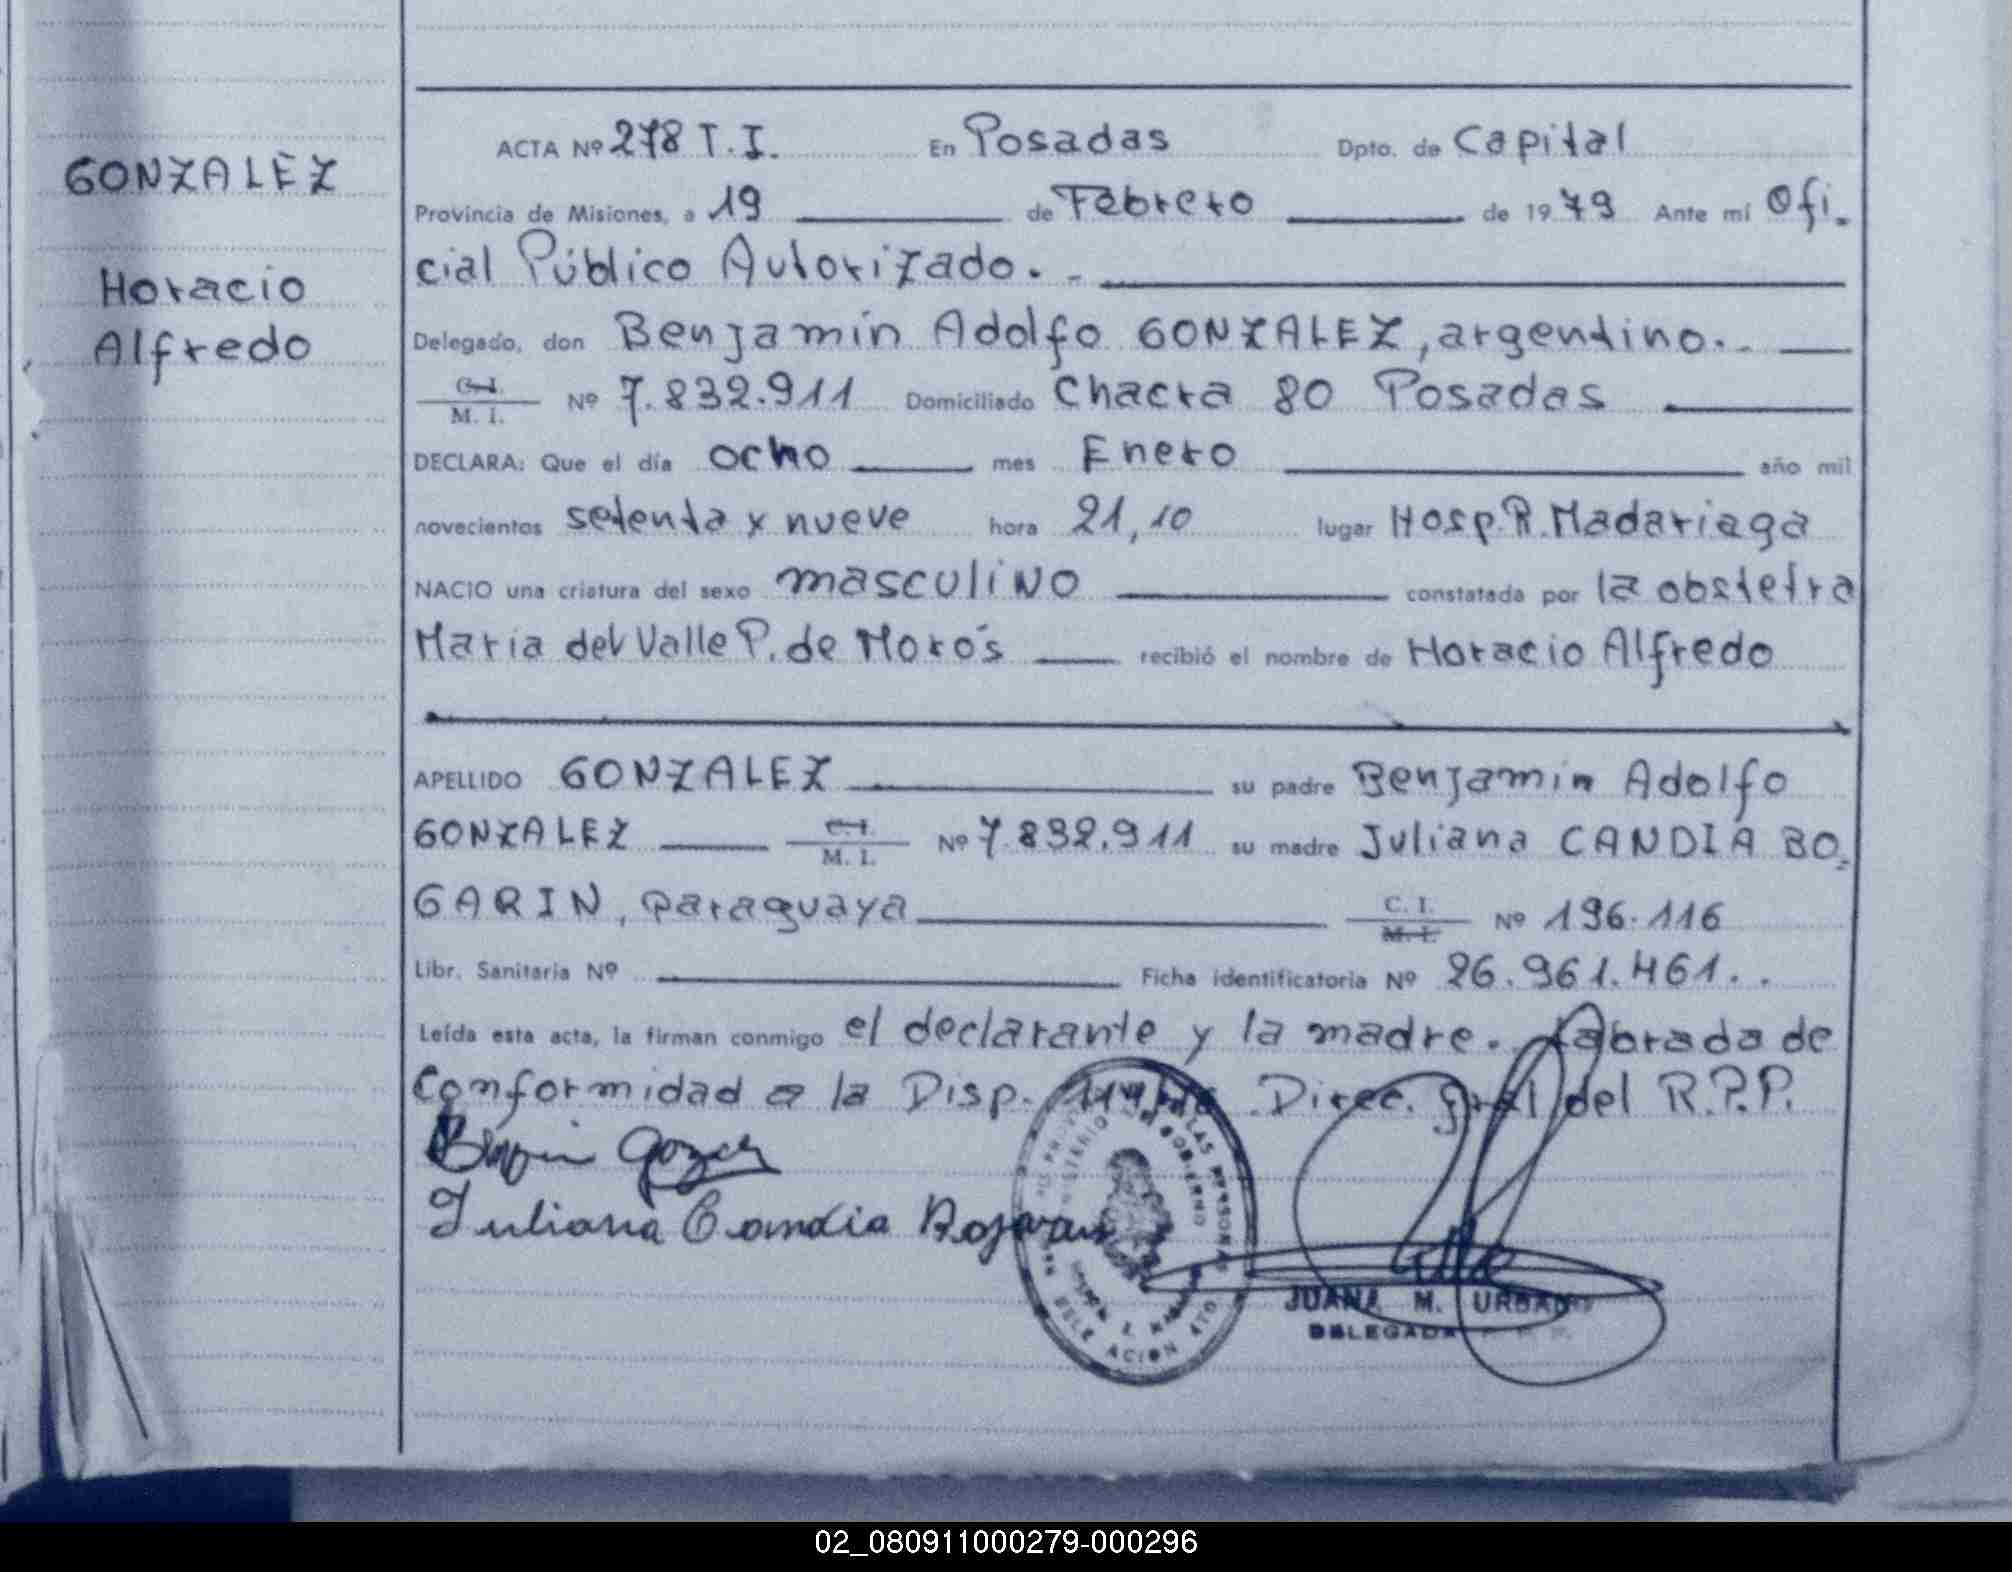 GONZALEZ
Horacio
Alfredo
ACTA Nº 278 T.I. En Posadas Dpto. de Capital
Provincia de Misiones, a 19 de Febrero de 1979 Ante mí Ofi.
cial Público Autorizado. -
Delegado, don Benjamín Adolfo GONZALEZ, argentino. -
C.I. M. I. Nº 7.832.911 Domiciliado Chacra 80 Posadas
DECLARA: Que el día ocho mes Enero año mil
novecientos setenta y nueve hora 21,10 lugar Hosp. R. Madariaga
NACIO una criatura del sexo masculino constatada por la obstetra
Maria del Valle P. de Moro's recibió el nombre de Horacio Alfredo
APELLIDO GONZALEZ su padre Benjamín Adolfo
GONZALEZ C.I. M. I. Nº 7.832.911 su madre Juliana CANDIA BO.
GARIN, paraguaya C. I. M. I. Nº 196.116
Libr. Sanitaria Nº Ficha identificatoria Nº 26.961.461. .
Leída esta acta, la firman conmigo el declarante y la madre. Labrada de
Conformidad a la Disp. Direc. gral del R.P.P.
Juliana Candia
JUANA M.
DELEGADA
02_080911000279-000296